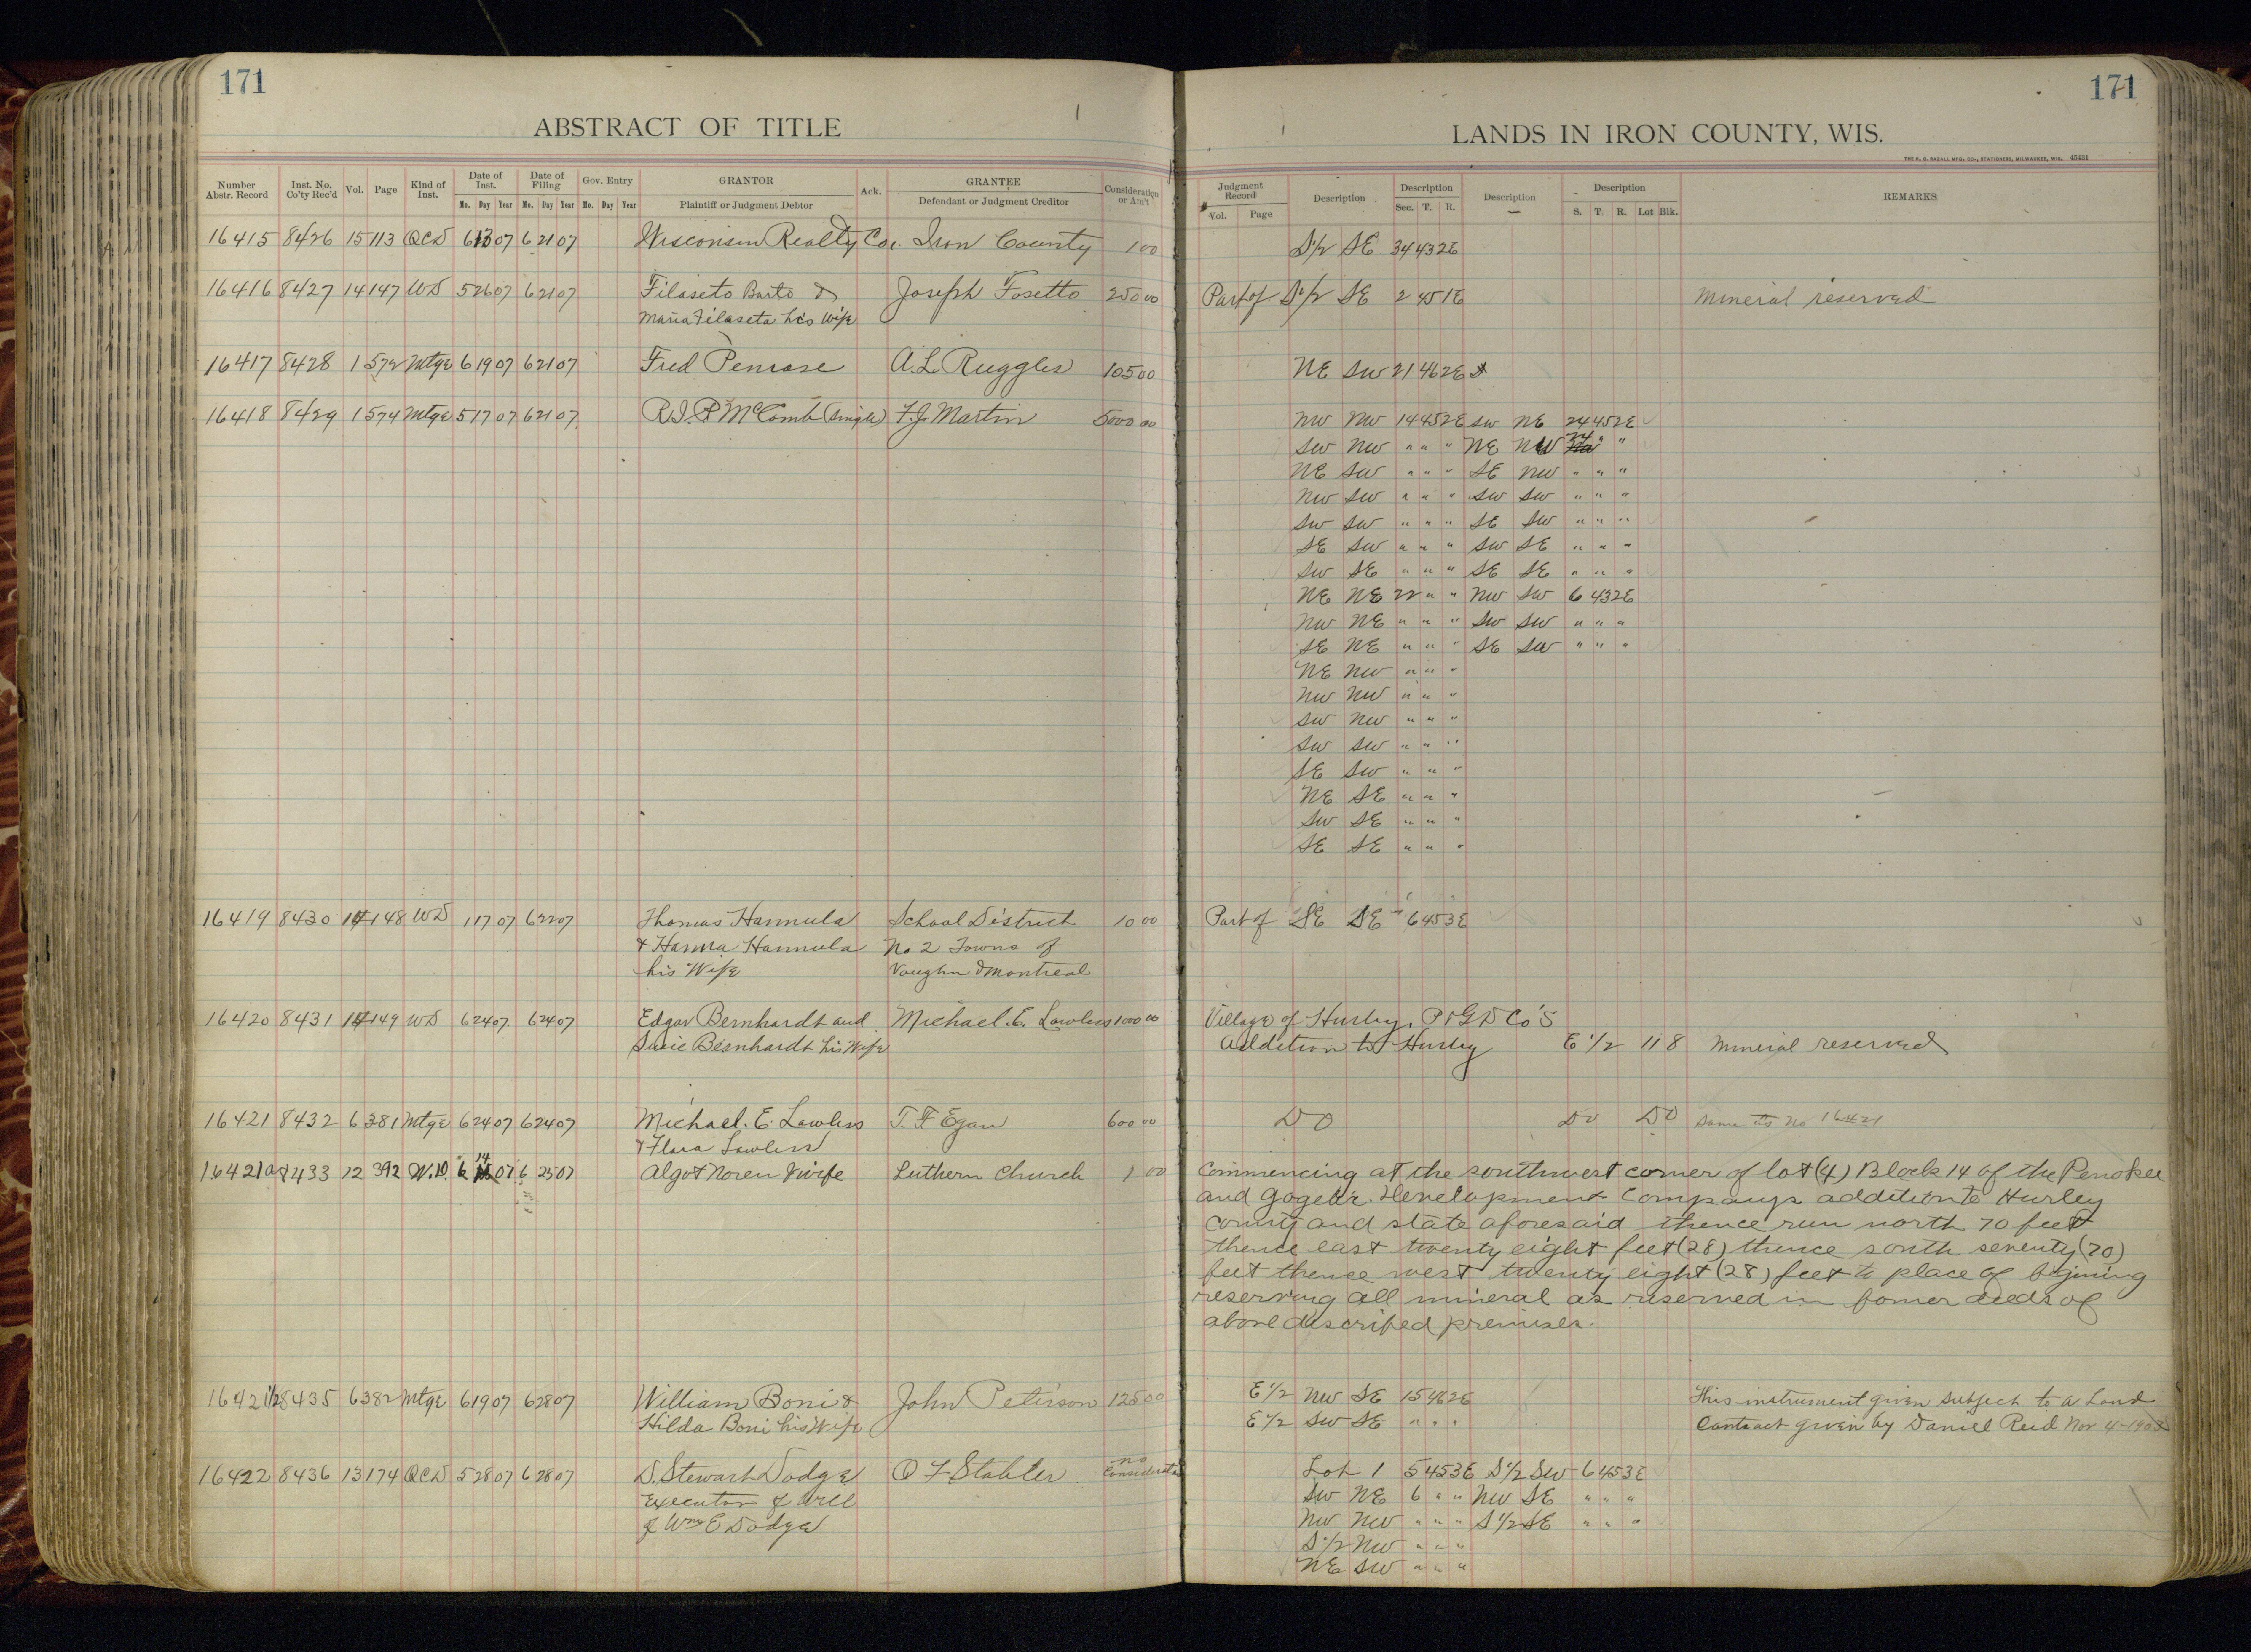 171
171
ABSTRACT OF TITLE
LANDS IN IRON COUNTY, WIS.
THE H. G. RAZALL MFG. CO., STATIONERS, MILWAUKEE, WIS. 45431
Number Abstr. Record
Inst. No. Co'ty Rec'd
Vol.
Page
Kind of Inst.
Date of Inst.
Mo. Day Year
Date of Filing
Mo. Day Year
Gov. Entry
Mo. Day Year
GRANTOR
Plaintiff or Judgment Debtor
Ack.
GRANTEE
Defendant or Judgment Creditor
Consideration or Am't
Judgment Record
Vol. Page
Description
Description
Sec. T. R.
Description
Description
S. T. R. Lot Blk.
REMARKS
16415 8426 15 113 QCD 6 13 07 6 21 07 Wisconsin Realty Co. Iron County 1 00 S 1/2 SE 34 43 2E
16416 8427 14 147 WD 5 26 07 6 21 07 Filaseto Barto & Joseph Fosetto 250 00 Part of S 1/2 SE 2 45 1E Mineral reserved
Maria Filaseta his wife
16417 8428 1 572 Mtge 6 19 07 6 21 07 Fred Penrose A. L. Ruggles 105 00 NE SW 21 46 2E
16418 8429 1 574 Mtge 5 17 07 6 21 07 R. I. P McComb (single) F. J. Martin 5000 00 NW NW 14 45 2E SW NE 24 45 2E
SW NW " " " NE NW 24 " "
NE SW " " " SE NW " " "
NW SW " " " SW SW " " "
SW SW " " " SE SW " " "
SE SW " " " SW SE " " "
SW SE " " " SE SE " " "
NE NE 22 " " NW SW 6 43 2E
NW NE " " " SW SW " " "
SE NE " " " SE SW " " "
NE NW " " "
NW NW " " "
SW NW " " "
SW SW " " "
SE SW " " "
NE SE " " "
SW SE " " "
SE SE " " "
16419 8430 14 148 WD 1 17 07 6 22 07 Thomas Hannula School District 10 00 Part of SE SE 6 45 3E
& Hanna Hannula No 2 Towns of
his Wife Vaughn & Montreal
16420 8431 14 149 WD 6 24 07 6 24 07 Edgar Bernhardt and Michael. E. Lawless 1000 00 Village of Hurley, P & G D Co's
Susie Bernhardt his Wife Addition to Hurley E 1/2 11 8 Mineral reserved
16421 8432 6 381 Mtge 6 24 07 6 24 07 Michael. E. Lawless T. F Egan 600 00 DO DO DO Same as No 16421
& Flora Lawless
16421a 8433 12 392 W.D. 6 14 07 6 25 07 Algot Noren & wife Luthern Church 1 00 Commencing at the southwest corner of lot (4) Block 14 of the Penokee
and Gogebic Development Companys addition to Hurley
county and state aforesaid thence run north 70 feet
thence east twenty eight feet (28) thence south seventy (70)
feet thence west twenty eight (28) feet to place of bgining
reserving all mineral as reserved in fomer deeds of
above described premises.
16421 1/2 8435 6 382 Mtge 6 19 07 6 28 07 William Boni & John Peterson 125 00 E 1/2 NW SE 15 46 2E This instrument given subject to a Land
Hilda Boni his Wife E 1/2 SW SE " " " Contract given by Daniel Reid Nov 4-1903
16422 8436 13 174 QCD 5 28 07 6 28 07 D. Stewart Dodge O F Stabler no consideration Lot 1 5 45 3E S 1/2 SW 6 45 3E
Executor of Will SW NE 6 " " NW SE " " "
of Wm E Dodge NW NW " " " S 1/2 SE " " "
S 1/2 NW " " "
NE SW " " "